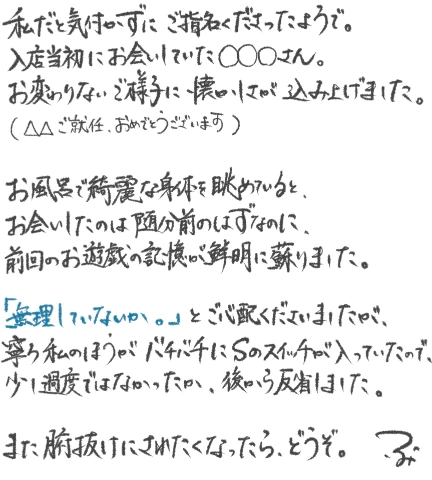 私だと気付かずに ご指名くださったようで。
入店当初にお会いしていた○○○さん。
お変わりないご様子に 懐かしさが 込み上げました。
(△△ご就任、おめでとうございます)
お風呂で綺麗な身体を眺めていると、
お会いしたのは随分前のはずなのに、
前回のお遊戯の記憶が鮮明に蘇りました。
「無理していないか。」とご心配くださいましたが、
寧ろ私のほうが バチバチにSのスイッチが入っていたので、
少し過度ではなかったか、後から反省しました。
また腑抜けにされたくなったら、どうぞ。 つぐみ